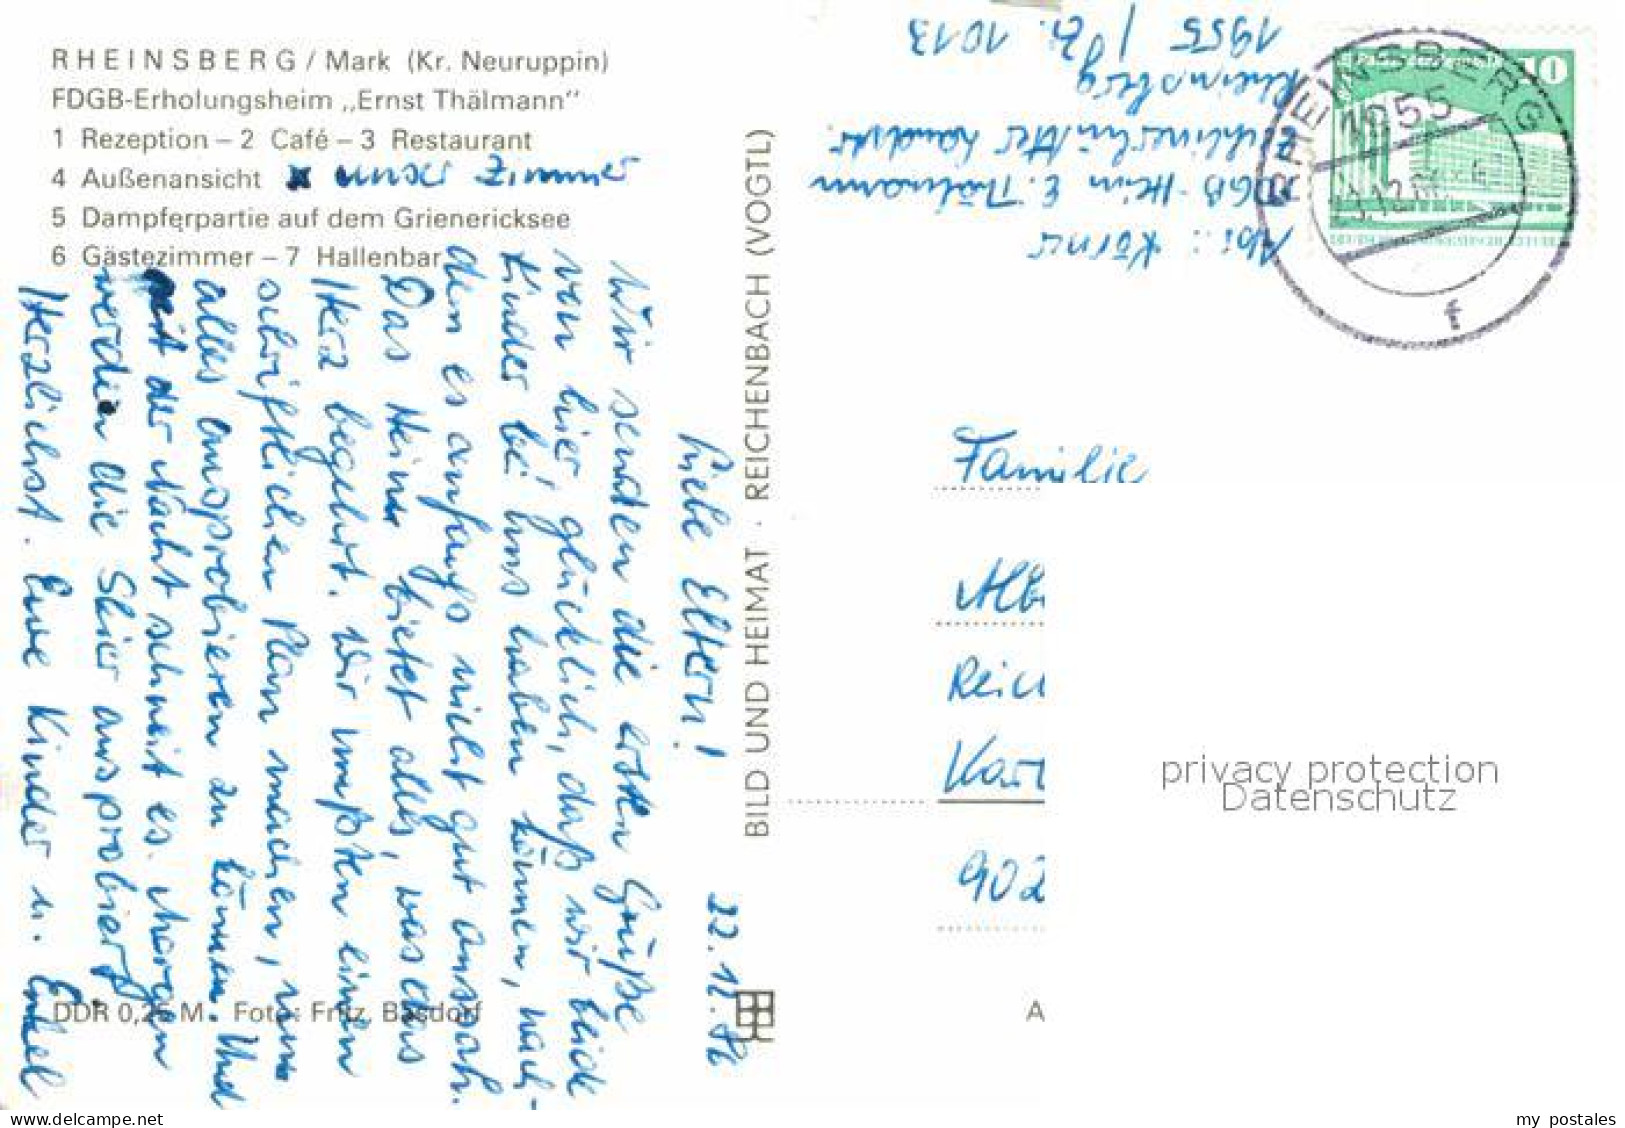 RHEINSBERG / Mark (Kr. Neuruppin)
FDGB-Erholungsheim „Ernst Thälmann“
1 Rezeption – 2 Café – 3 Restaurant
4 Außenansicht x unser Zimmer
5 Dampferpartie auf dem Grienericksee
6 Gästezimmer – 7 Hallenbar
22.12.86
Liebe Eltern!
Wir senden die ersten Grüße
von hier, glücklich, daß wir beide
Kinder bei uns haben können, nach-
dem es anfangs nicht gut aussah.
Das Heim bietet alles, was das
Herz begehrt. Wir mußten einen
schriftlichen Plan machen, um
alles ausprobieren zu können. Und
seit der Nacht schneit es. Morgen
werden die Skier ausprobiert.
Herzlichst. Eure Kinder u. Enkel
DDR 0,25 M. Foto: Fritz, Basdorf
BILD UND HEIMAT · REICHENBACH (VOGTL)
Abs.: Körner
FDGB-Heim E. Thälmann
Zechlinerhütter Landstr.
Rheinsberg
1955 / Zi. 1013
RHEINSBERG
1955
f
10
Familie
Alb
Reic
Karl
902
A
privacy protection
Datenschutz
my postales